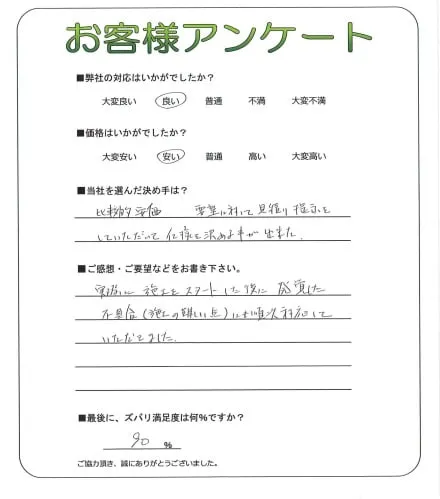 お客様アンケート
■弊社の対応はいかがでしたか?
大変良い 良い 普通 不満 大変不満
■価格はいかがでしたか?
大変安い 安い 普通 高い 大変高い
■当社を選んだ決め手は?
比較的安価 要望に対して見積り提示を
していただいて仕様を決める事が出来た.
■ご感想・ご要望などをお書き下さい。
実際に施工をスタートした後に発覚した
不具合(施工の難しい点)にも順次対応して
いただきました.
■最後に、ズバリ満足度は何%ですか?
90 %
ご協力頂き、誠にありがとうございました。